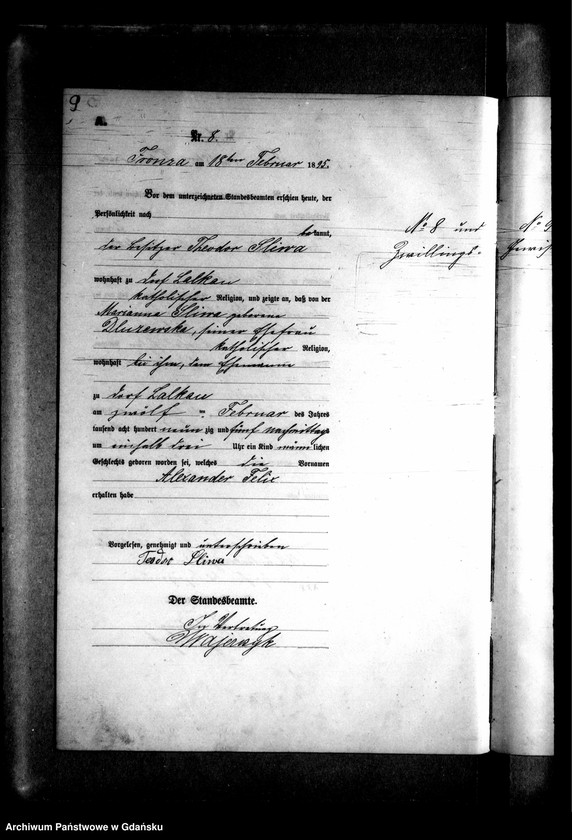 9
A.
Nr. 8.
Fronza am 18ten Februar 1895.
Vor dem unterzeichneten Standesbeamten erschien heute, der
Persönlichkeit nach
bekannt,
der Besitzer Theodor Sliwa
wohnhaft zu Dorf Lalkau
katholischer Religion, und zeigte an, daß von der
Marianna Sliwa geborene
Dluzewska, seiner Ehefrau
katholischer Religion,
wohnhaft bei ihm, dem Ehemanne
zu Dorf Lalkau
am zwölf ten Februar des Jahres
tausend acht hundert neun zig und fünf Nachmittags
um einhalb drei Uhr ein Kind männlichen
Geschlechts geboren worden sei, welches die Vornamen
Alexander Felix
erhalten habe
Vorgelesen, genehmigt und unterschrieben
Teodor Sliwa
Der Standesbeamte.
In Vertretung
No 8 und
Zwillings.
No 9
Archiwum Państwowe w Gdańsku